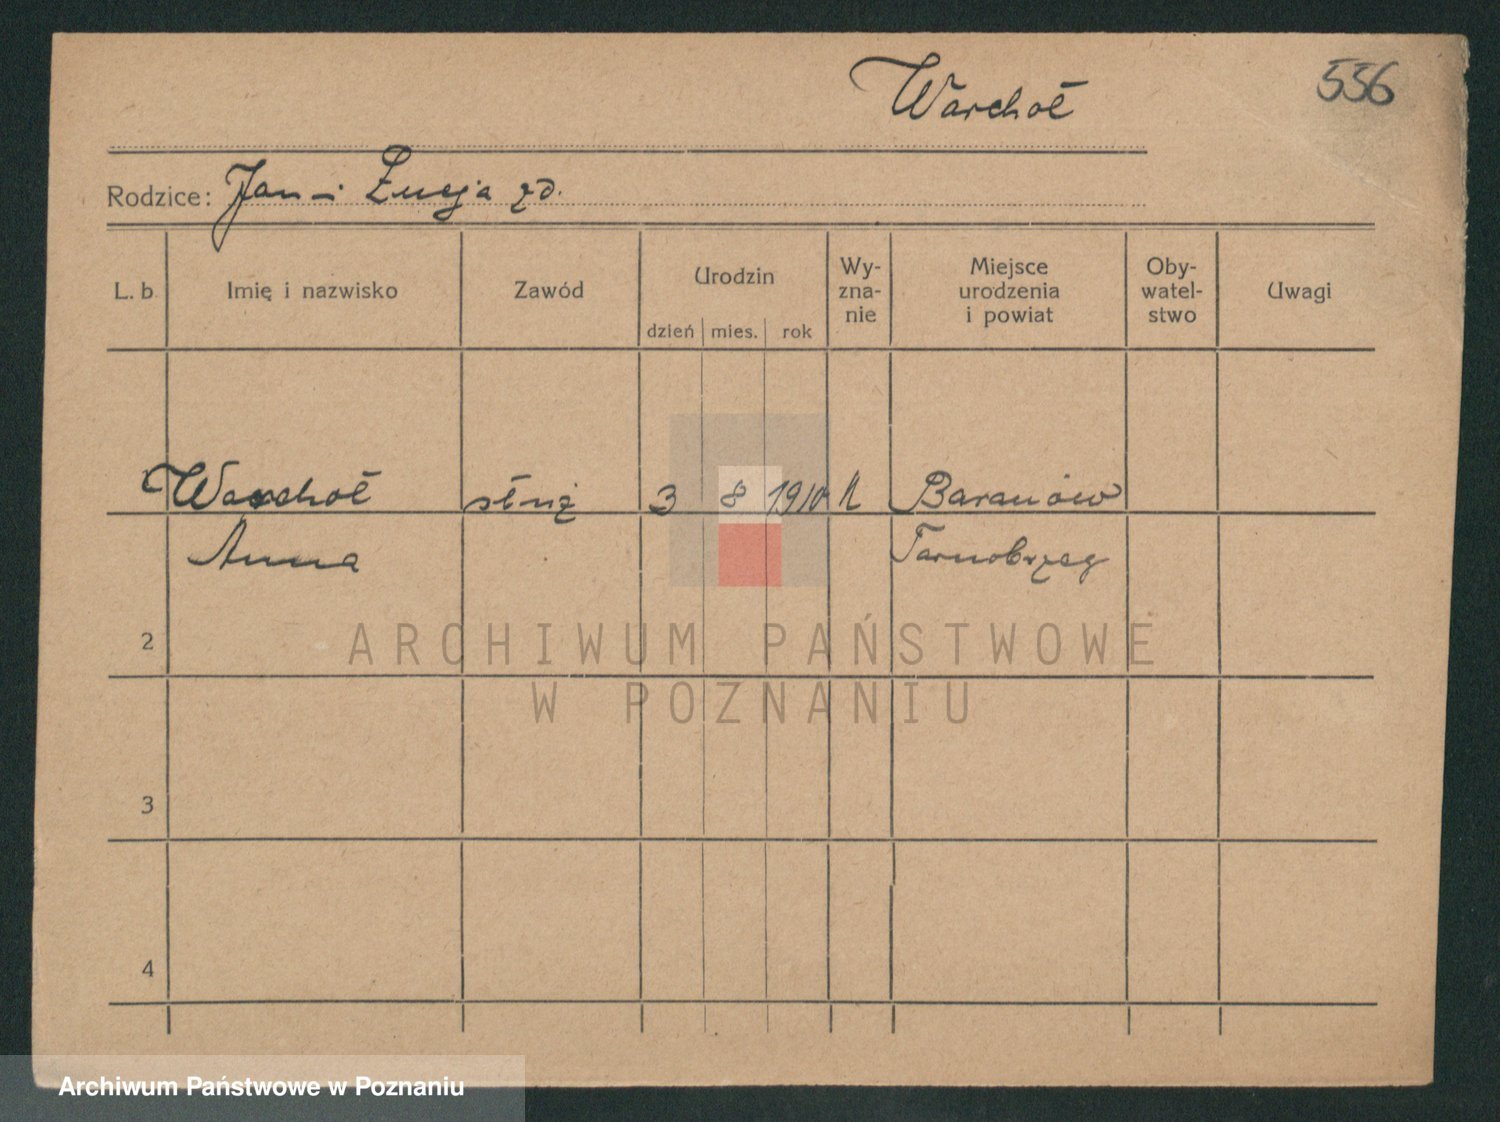 Warchoł
556
Rodzice: Jan i Łucja zd.
L. b. Imię i nazwisko Zawód Urodzin Wy-zna-nie Miejsce urodzenia i powiat Oby-watel-stwo Uwagi
dzień mies. rok
Warchoł służ 3 8 1910 k Baranów
Anna Tarnobrzeg
2
ARCHIWUM PAŃSTWOWE
W POZNANIU
3
4
Archiwum Państwowe w Poznaniu